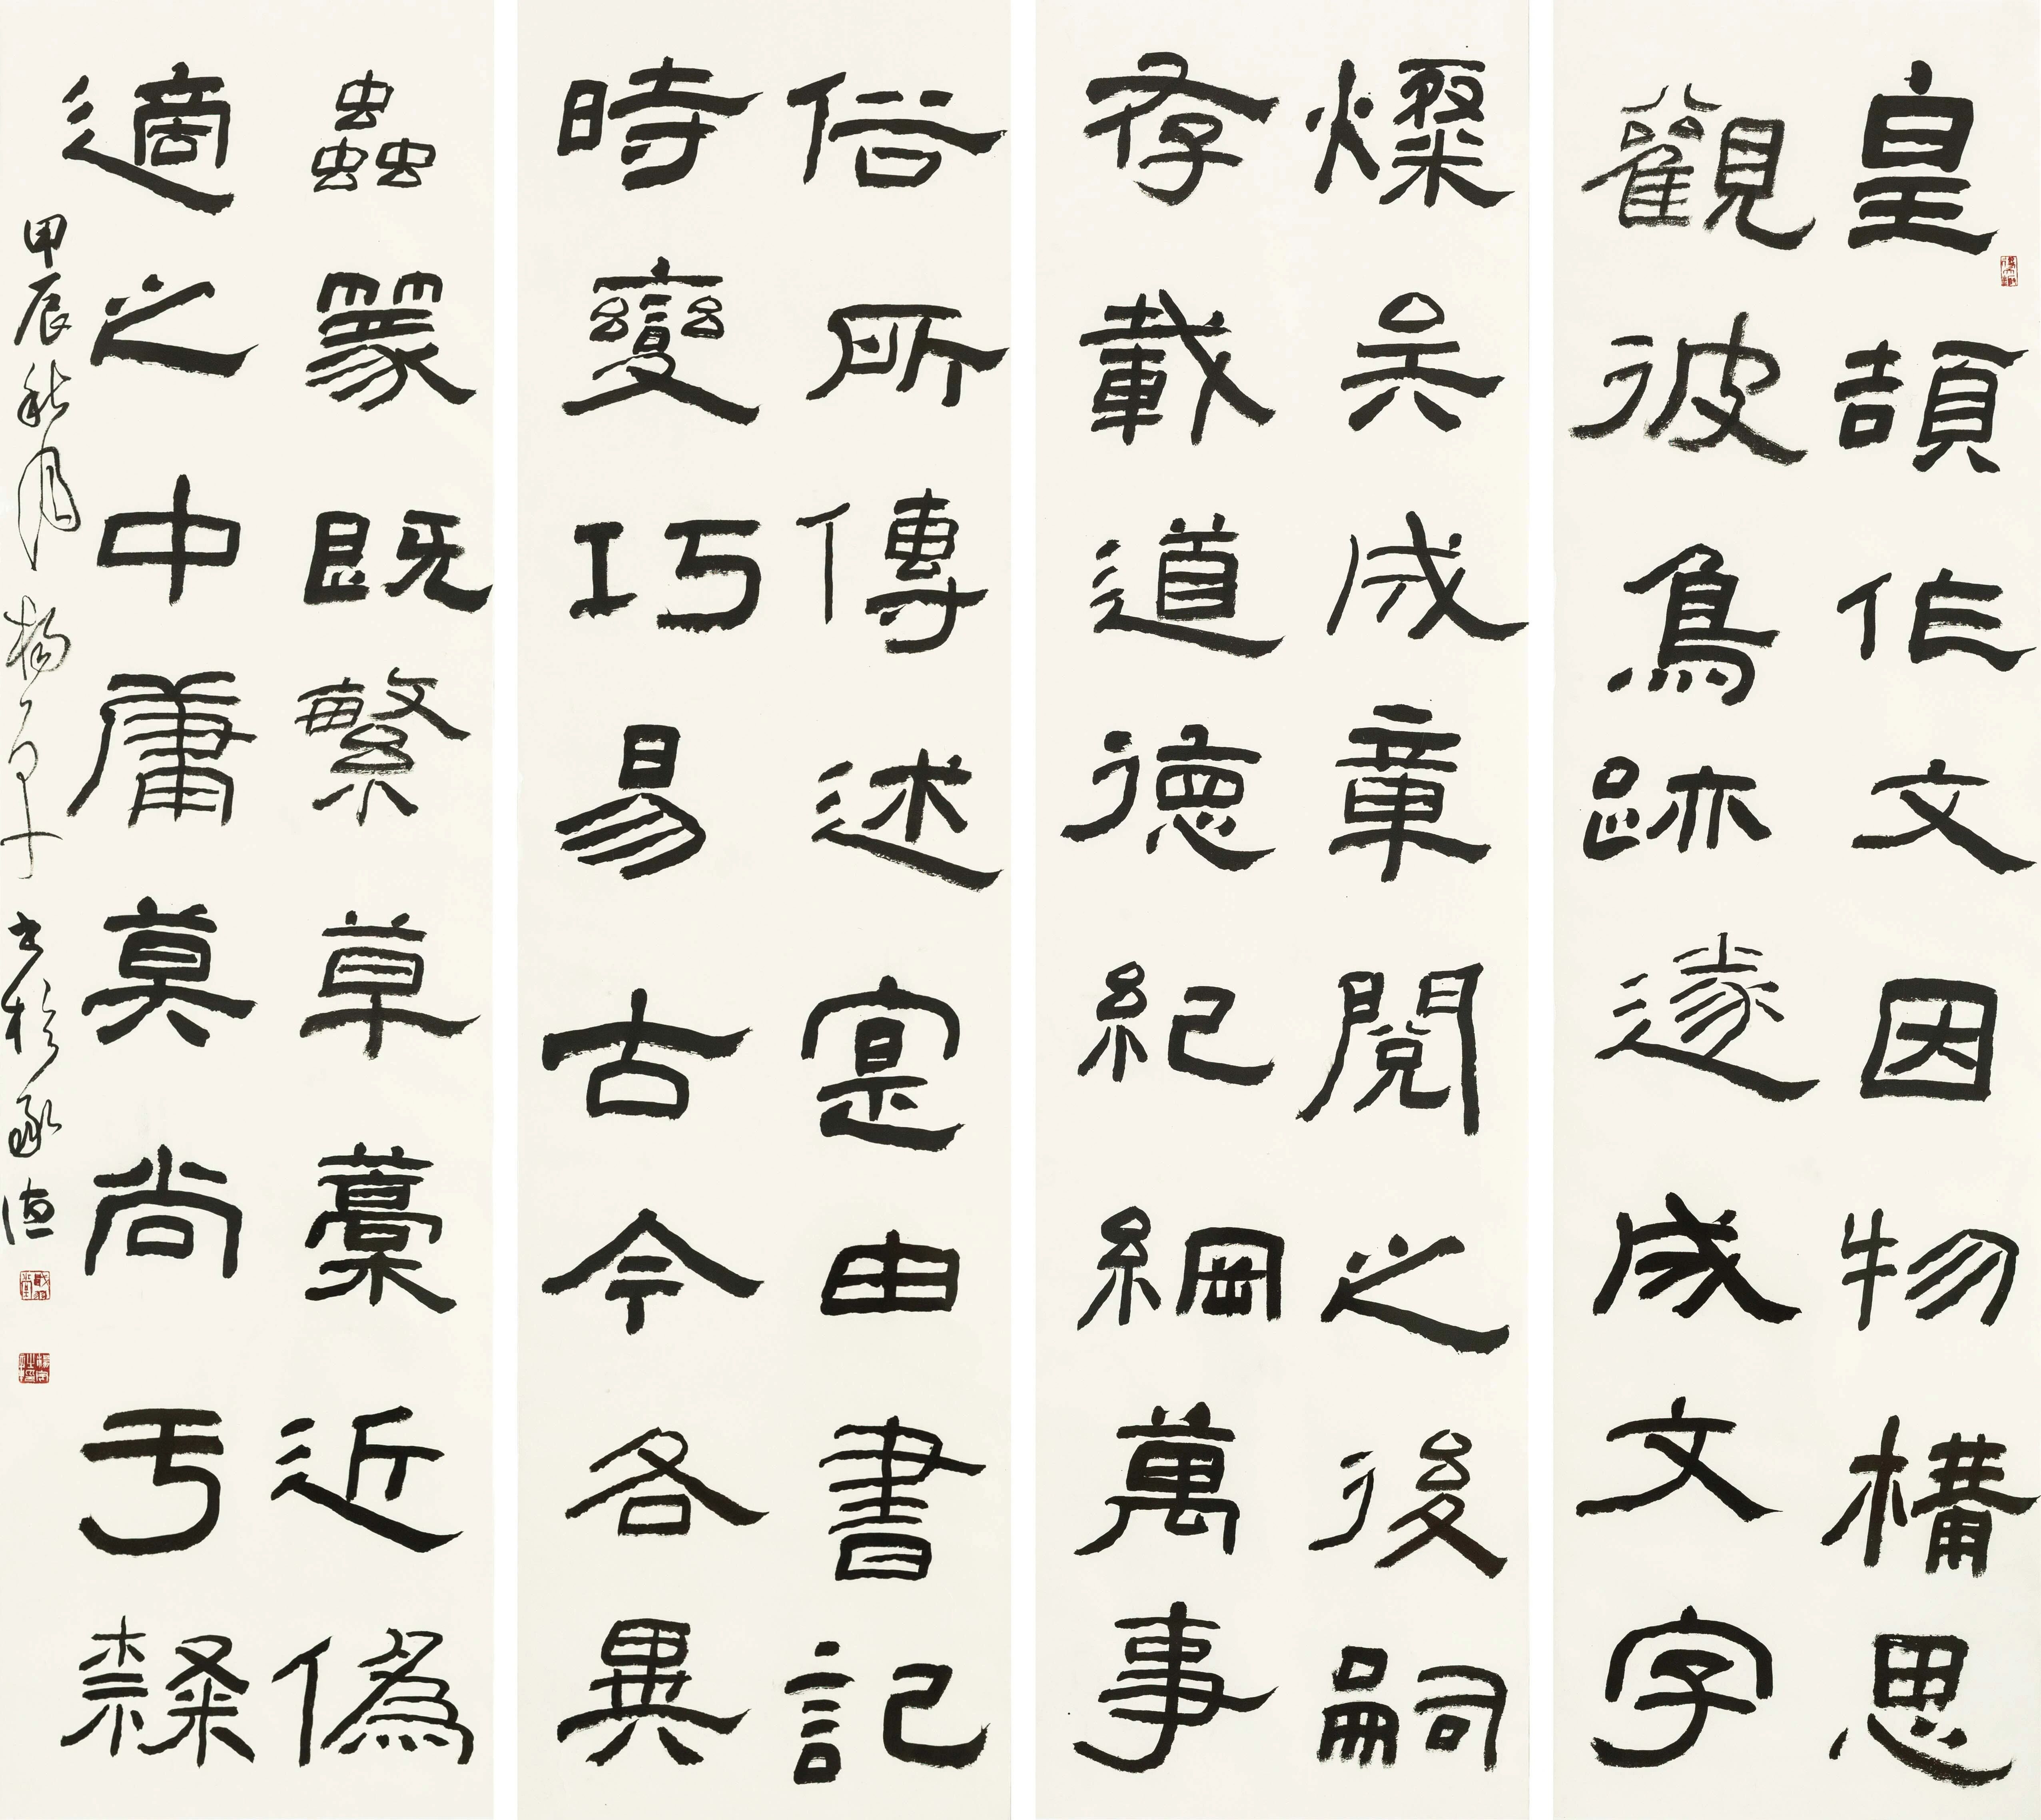 皇頡作文因物構思
觀彼鳥跡遂成文字
燦矣成章閱之後嗣
存載道德紀綱萬事
俗所傳述寔由書記
時變巧易古今各異
蟲篆既繁草藁近偽
適之中庸莫尚于隸
甲辰秋月